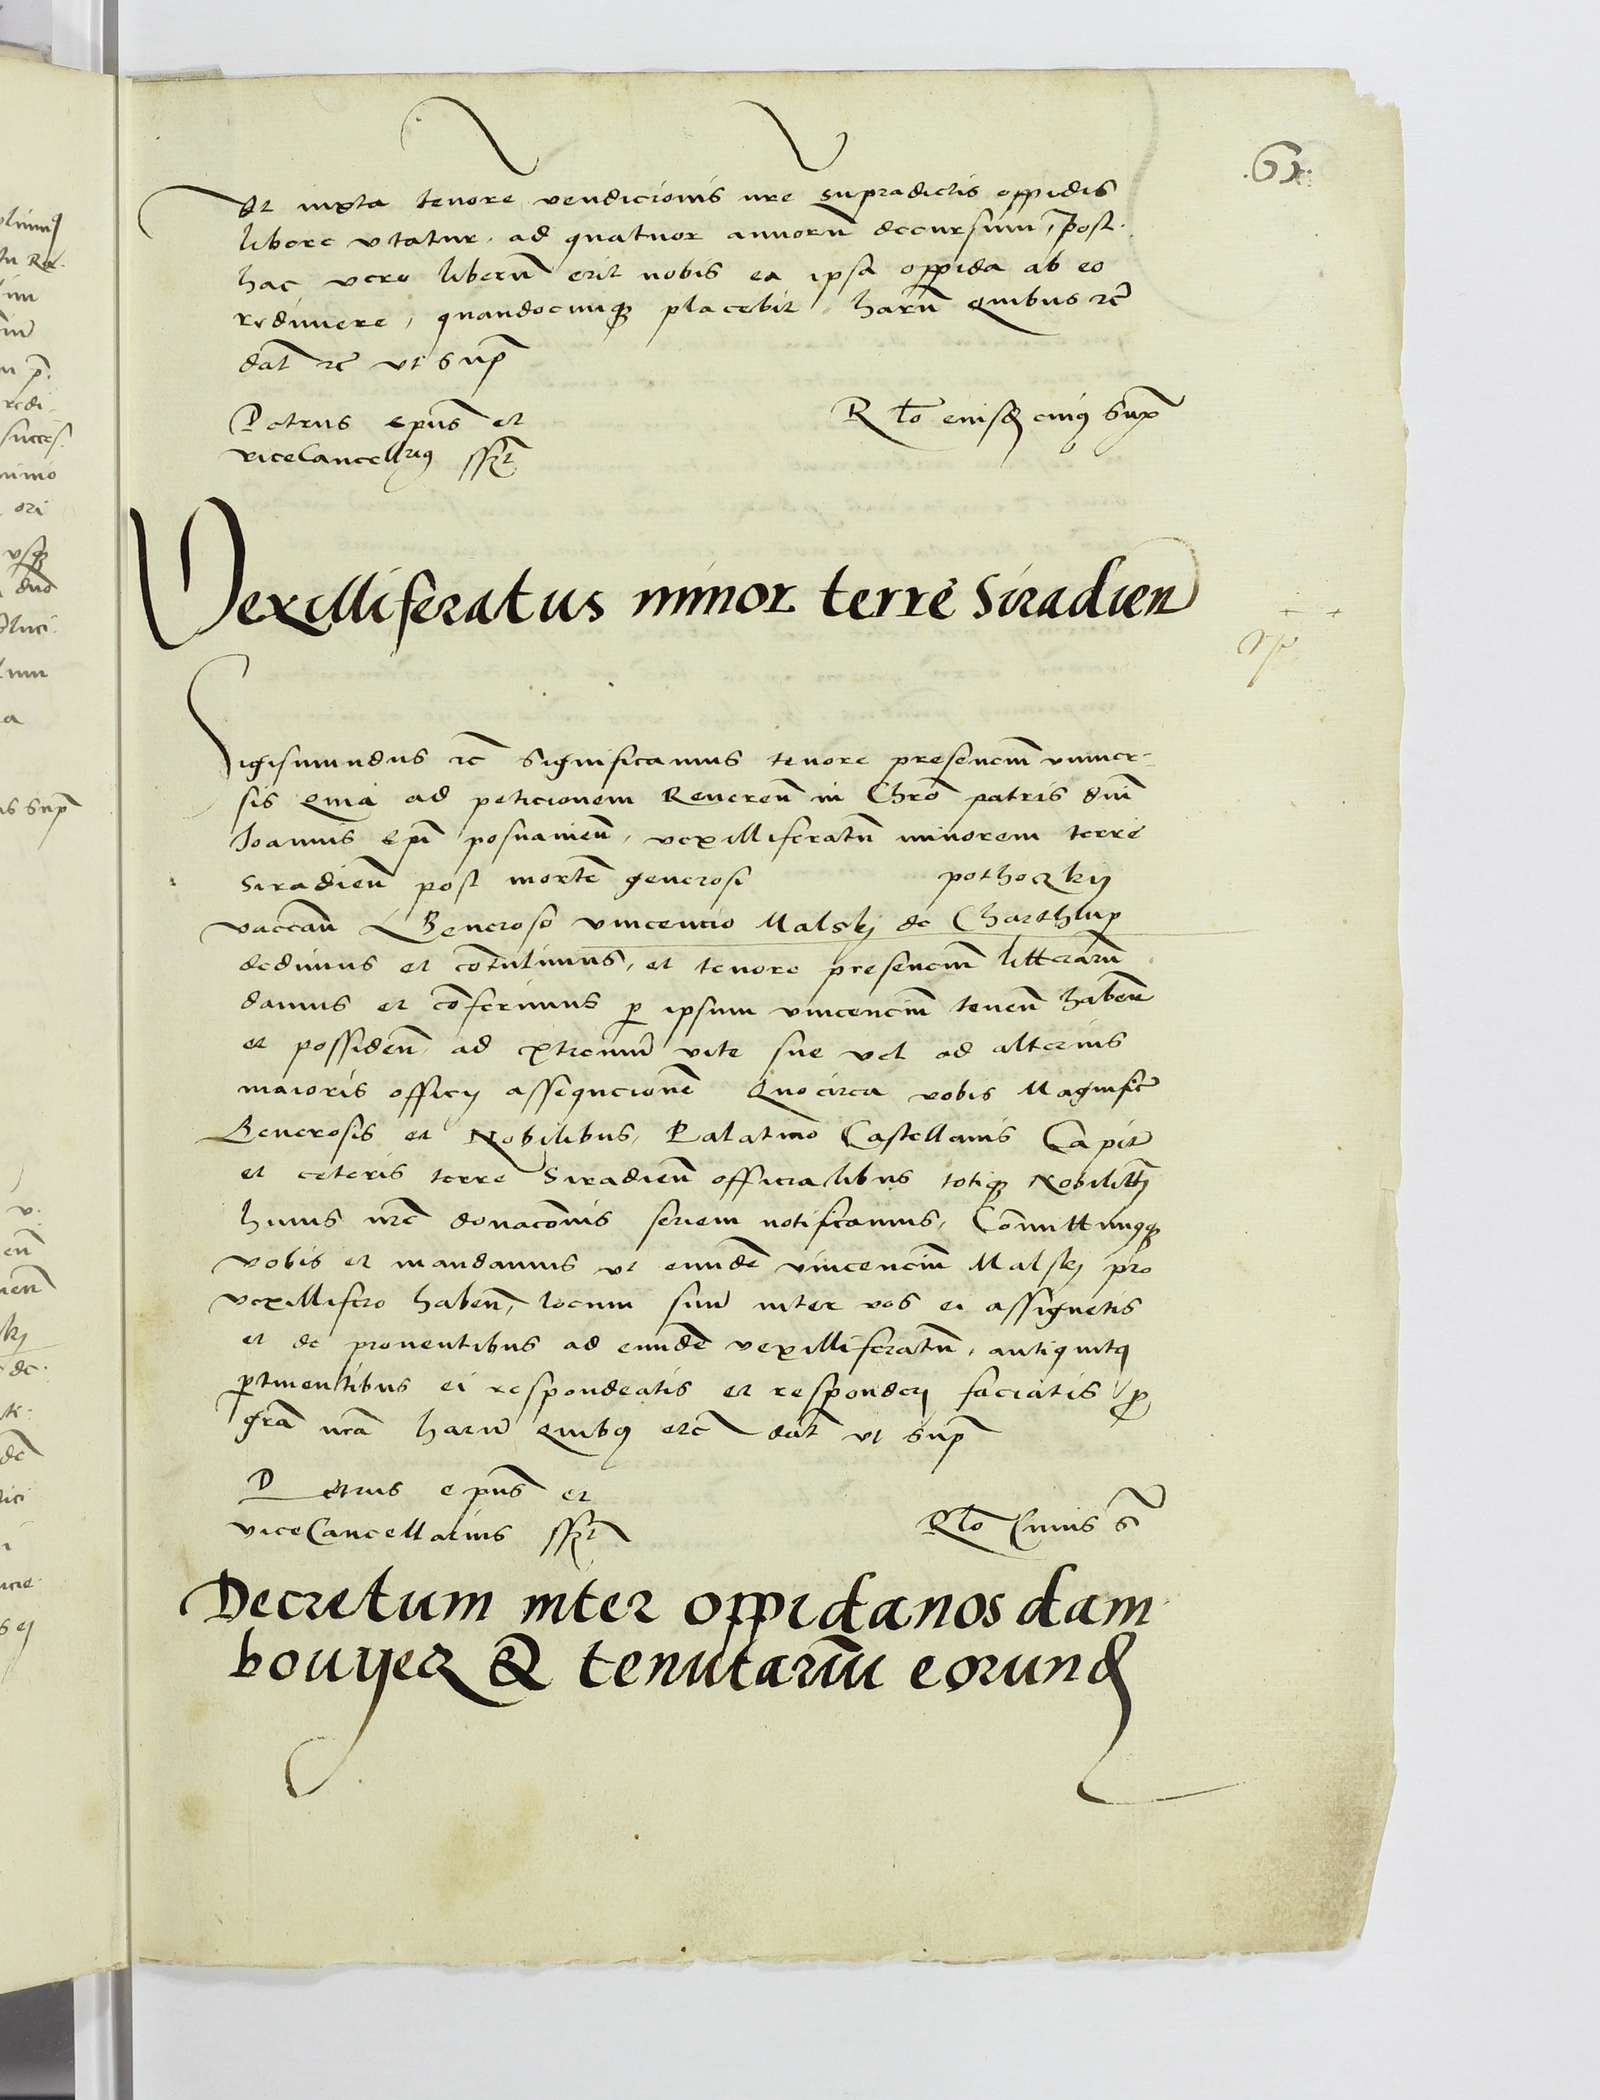 61
Et iuxta tenorē vendicionis nrē supradictis oppidis
libere vtatur, ad quatuor annorū decursum, post
hac vero liberū erit nobis ea ipsa oppida ab eo
redimere, quandocunqȝ placebit harū quibus rc̄
dat̄ rc̄ vt sup̄
Petrus ep̄us et
viceCancellrius sszt
R tō cuius sup̄
Vexilliferatus minor terrę Siradien
Sigismundus rc̄ significamus tenore presenciū vniuer-
sis quia ad peticionem Reueren̄ in Chrō patris dn̄i
Joannis ep̄i posnanien̄, vexilliferatū minorem terrę
Siradien̄ post mortē generosi pothoczkij
vaccan̄ Generoso vincencio Malskj de Charthlup
dedimus et cōtulimus, et tenore presenciū litterarū
damus et cōferimus p ipsum vincenciū tenen̄ haben̄
et possiden̄ ad extremū vitę suę vel ad alterius
maioris officij assequcionē Quocirca vobis Magnific̄
Generosis et Nobilibus, Palatino Castellanis Capit̄
et ceteris terrę Siradien̄ officialibus totiqȝ Nobilitti
huius nrē donacōnis seriem notificamus, Cōmittimusqȝ
vobis et mandamus vt eundē vincenciū Malskj pro
vexillifero haben̄, locum suū inter vos ei assignetis
et de prouentibus ad eundē vexilliferatū, antiquitꝰ
ptinentibus ei respondeatis et responderi faciatis p
grām nrām harū quibꝰ etc̄ dat̄ vt sup̄
Petrus ep̄us et
viceCancellarius sszt
R tō Cuius s̄
Decretum inter oppidanos dam
bouyecz & tenutariū eorund